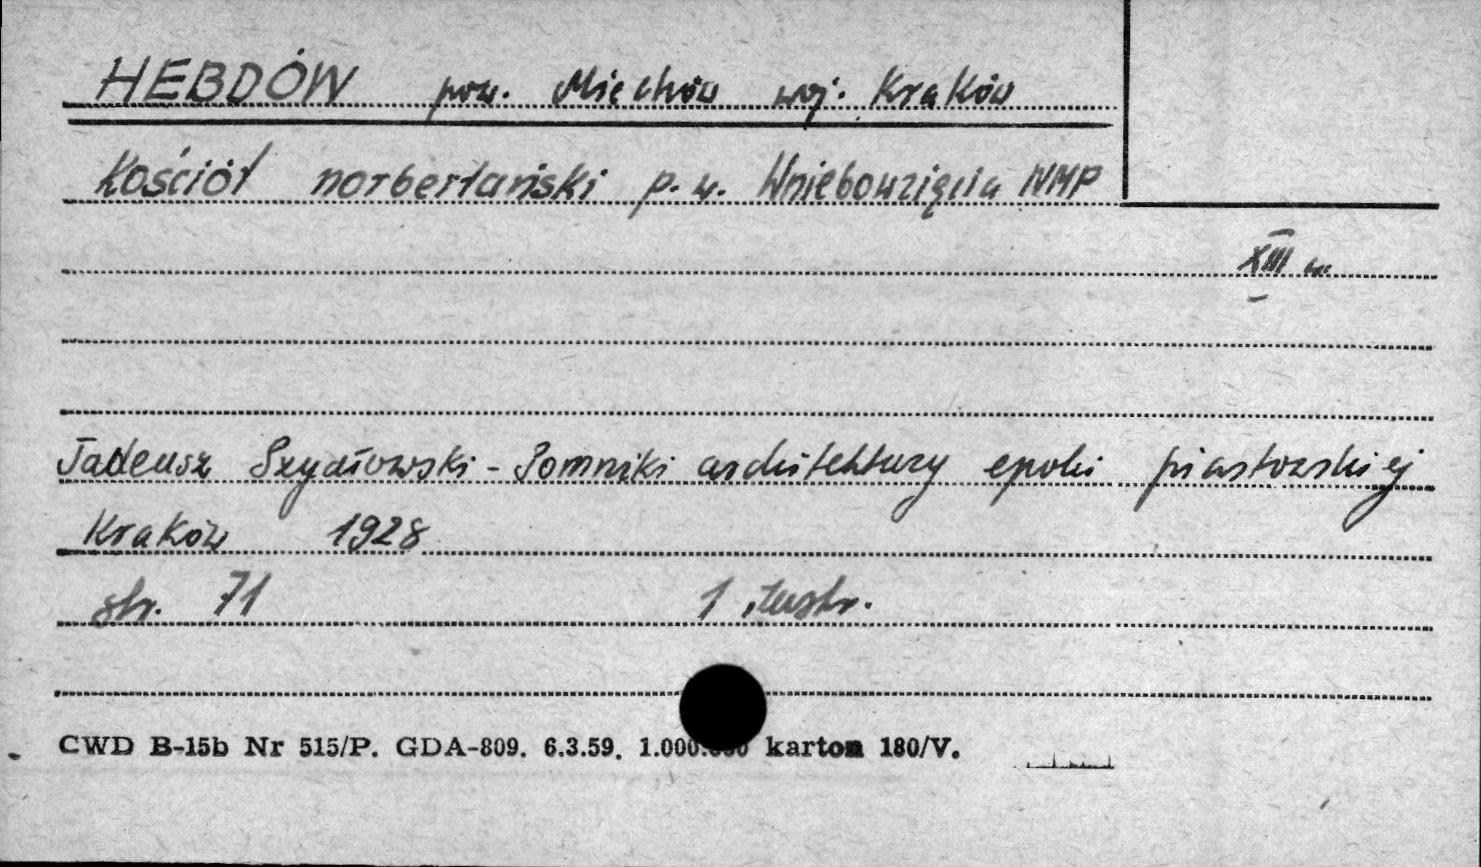 HEBDÓW pow. Miechów woj. Kraków
Kościół norbertański p. w. Wniebowzięcia NMP
XIII w.
Tadeusz Szydłowski - Pomniki architektury epoki piastowskiej
Kraków 1928
str. 71 1 ilustr.
CWD B-15b Nr 515/P. GDA-809. 6.3.59. 1.000.000 karton 180/V.